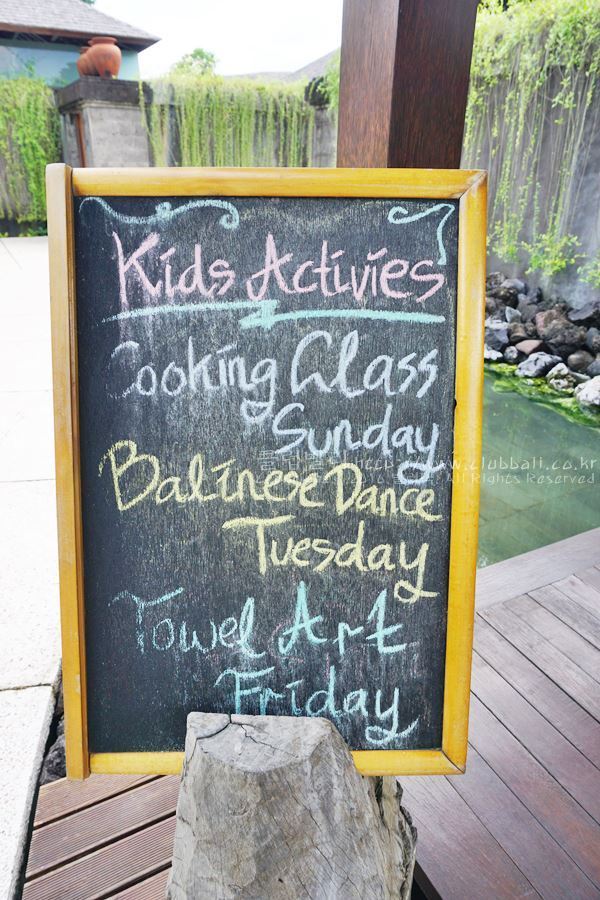 Kids Activies
Cooking Class
Sunday
www.clubbali.co.kr
All Rights Reserved
Balinese Dance
Tuesday
Towel Art
Friday